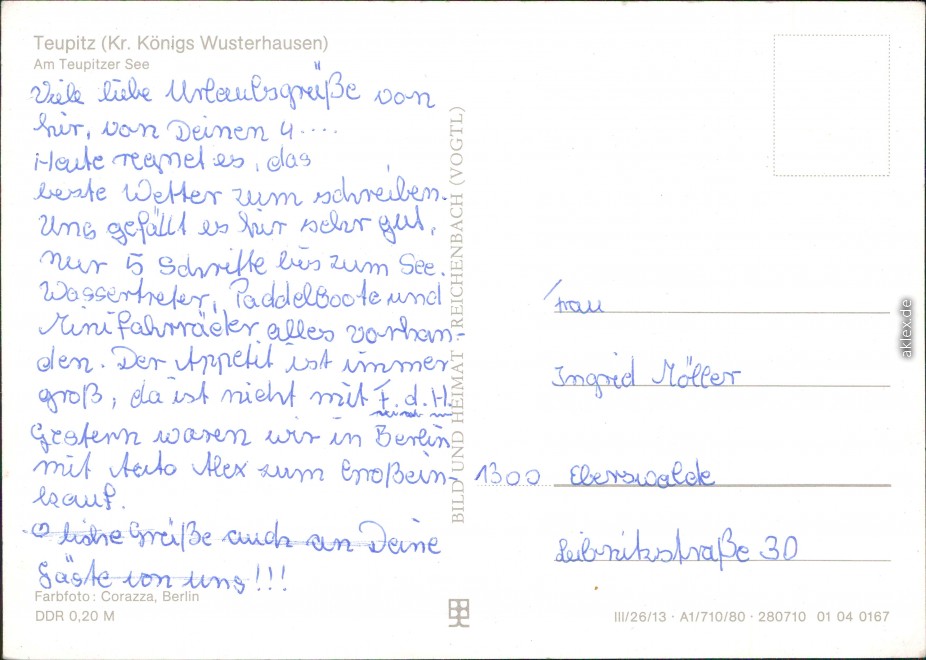 Teupitz (Kr. Königs Wusterhausen)
Am Teupitzer See
Viele liebe Urlaubsgrüße von
hier, von Deinen 4....
Heute regnet es, das
beste Wetter zum schreiben.
Uns gefällt es hier sehr gut,
nur 5 Schritte bis zum See.
Wassertreter, Paddelboote und
Minifahrräder alles vorhan-
den. Der Appetit ist immer
groß, da ist nicht mit F.d.H.
Gestern waren wir in Berlin
mit Auto Alex zum Großein-
kauf.
liebe Grüße auch an Deine
Gäste von uns!!!
Farbfoto: Corazza, Berlin
DDR 0,20 M
BILD UND HEIMAT REICHENBACH (VOGTL)
Frau
Ingrid Möller
1300 Eberswalde
Leibnitzstraße 30
III/26/13 · A1/710/80 · 280710 01 04 0167
aklex.de